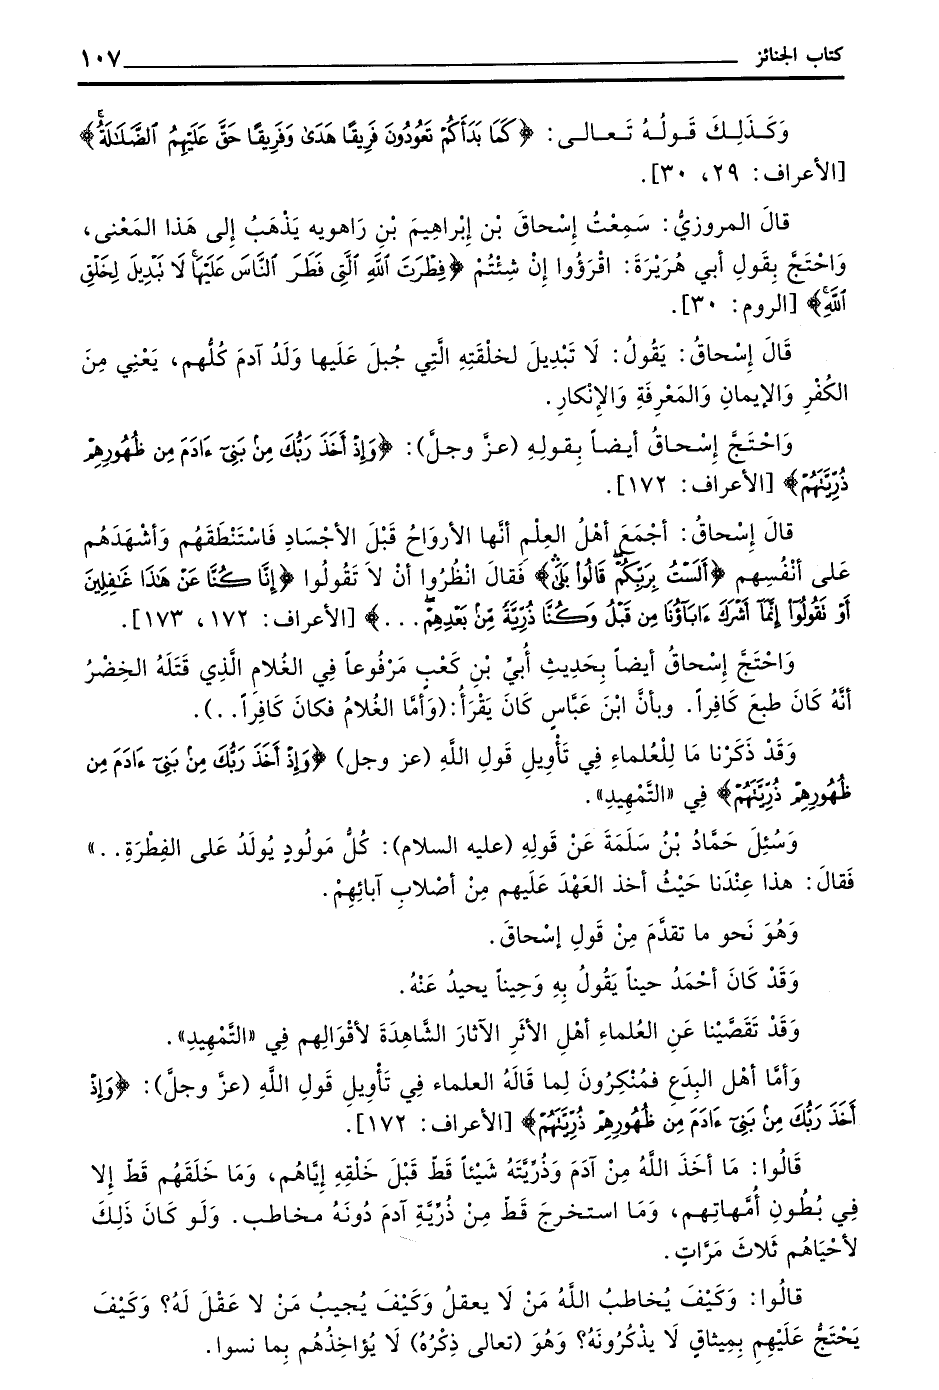 كتاب الجنائز ١٠٧
وَكَذَلِكَ قَولُهُ تَعالى: ﴿كَمَا بَدَأَكُمْ تَعُودُونَ فَرِيقًا هَدَىٰ وَفَرِيقًا حَقَّ عَلَيْهِمُ ٱلضَّلَٰلَةُ﴾
[الأعراف: ٢٩، ٣٠].
قالَ المروزيُّ: سَمِعْتُ إسْحاقَ بْن إبْراهِيمَ بْنِ رَاهويه يَذْهَبُ إلى هَذا المَعْنى،
وَاحْتَجَّ بِقَولِ أبي هُرَيْرَةَ: اقْرَؤُوا إنْ شِئْتُمْ ﴿فِطْرَتَ ٱللَّهِ ٱلَّتِى فَطَرَ ٱلنَّاسَ عَلَيْهَا لَا نَبْدِيلَ لِخَلْقِ
ٱللَّهِ﴾ [الروم: ٣٠].
قَالَ إسْحاقُ: يَقُولُ: لَا تَبْدِيلَ لخلْقَتِهِ الَّتِي جُبلَ عَلَيها وَلَدُ آدمَ كُلُّهم، يَعْنِي مِنَ
الكُفْرِ وَالإيمانِ وَالمَعْرِفَةِ وَالإنْكارِ.
وَاحْتَجَّ إسْحاقُ أيضاً بِقولِهِ (عزَّ وجلَّ): ﴿وَإِذْ أَخَذَ رَبُّكَ مِنۢ بَنِىٓ ءَادَمَ مِن ظُهُورِهِمْ
ذُرِّيَّتَهُمْ﴾ [الأعراف: ١٧٢].
قالَ إسْحاقُ: أجْمَعَ أهْلُ العِلْمِ أنَّها الأرواحُ قَبْلَ الأجْسَادِ فَاسْتَنْطَقَهُم وَأشْهَدَهُم
عَلى أنْفُسِهم ﴿أَلَسْتُ بِرَبِّكُمْ قَالُوا۟ بَلَىٰ﴾ فَقالَ انْظُرُوا أنْ لاَ تَقُولُوا ﴿إِنَّا كُنَّا عَنْ هَٰذَا غَٰفِلِينَ
أَوْ نَقُولُوٓا۟ إِنَّمَآ أَشْرَكَ ءَابَآؤُنَا مِن قَبْلُ وَكُنَّا ذُرِّيَّةً مِّنۢ بَعْدِهِمْ...﴾ [الأعراف: ١٧٢، ١٧٣].
وَاحْتَجَّ إسْحاقُ أيضاً بِحَديثِ أُبيِّ بْنِ كَعْبٍ مَرْفُوعاً فِي الغُلامِ الَّذِي قَتَلَهُ الخِضْرُ
أنَّهُ كَانَ طبعَ كَافِراً. وبأنَّ ابْنَ عَبَّاسٍ كَانَ يَقْرَأُ:(وَأمَّا الغُلامُ فكانَ كَافِراً..).
وَقَدْ ذَكَرْنا مَا لِلْعُلماءِ فِي تَأْويلِ قَولِ اللَّهِ (عز وجل) ﴿وَإِذْ أَخَذَ رَبُّكَ مِنۢ بَنِىٓ ءَادَمَ مِن
ظُهُورِهِمْ ذُرِّيَّتَهُمْ﴾ فِي «التَّمْهِيدِ».
وَسُئِلَ حَمَّادُ بْنُ سَلَمَةَ عَنْ قَولِهِ (عليه السلام): كُلُّ مَولُودٍ يُولَدُ عَلى الفِطْرَةِ..»
فَقالَ: هذا عِنْدَنا حَيْثُ أخذ العَهْدَ عَلَيهم مِنْ أصْلابِ آبائِهِمْ.
وَهُوَ نَحو ما تقدَّمَ مِنْ قَولِ إسْحاقَ.
وَقَدْ كَانَ أحْمَدُ حيناً يَقُولُ بِهِ وَحِيناً يحيدُ عَنْهُ.
وَقَدْ تَقَصَّيْنا عَنِ العُلماءِ أهْلِ الأثَرِ الآثارَ الشَّاهِدَةَ لأقْوَالِهم فِي «التَّمْهِيدِ».
وَأمَّا أهْل البِدَعِ فمُنْكِرُونَ لِما قَالَهُ العلماء في تَأْويلِ قَولِ اللَّهِ (عزَّ وجلَّ): ﴿وَإِذْ
أَخَذَ رَبُّكَ مِنۢ بَنِىٓ ءَادَمَ مِن ظُهُورِهِمْ ذُرِّيَّتَهُمْ﴾ [الأعراف: ١٧٢].
قَالُوا: مَا أخَذَ اللَّهُ مِنْ آدَمَ وَذُرِّيَّتِهُ شَيْئاً قَطّ قَبْلَ خَلْقِهِ إيَّاهُم، وَمَا خَلَقَهُم قَطّ إلا
فِي بُطُونِ أُمَّهاتِهم، وَمَا استخرجَ قَط مِنْ ذُرِّيَّةِ آدمَ دُونَهُ مخاطب. وَلَو كَانَ ذَلِكَ
لأحْيَاهُم ثَلاثَ مَرَّاتٍ.
قالُوا: وَكَيْفَ يُخاطبُ اللَّهُ مَنْ لَا يعقلُ وَكَيْفَ يُجيبُ مَنْ لا عَقْلَ لَهُ؟ وَكَيْفَ
يَحْتَجُّ عَلَيْهِم بِمِيثاقٍ لَا يذْكُرُونَهُ؟ وَهُوَ (تعالى ذِكْرُهُ) لَا يُؤاخِذُهُم بِما نسوا.